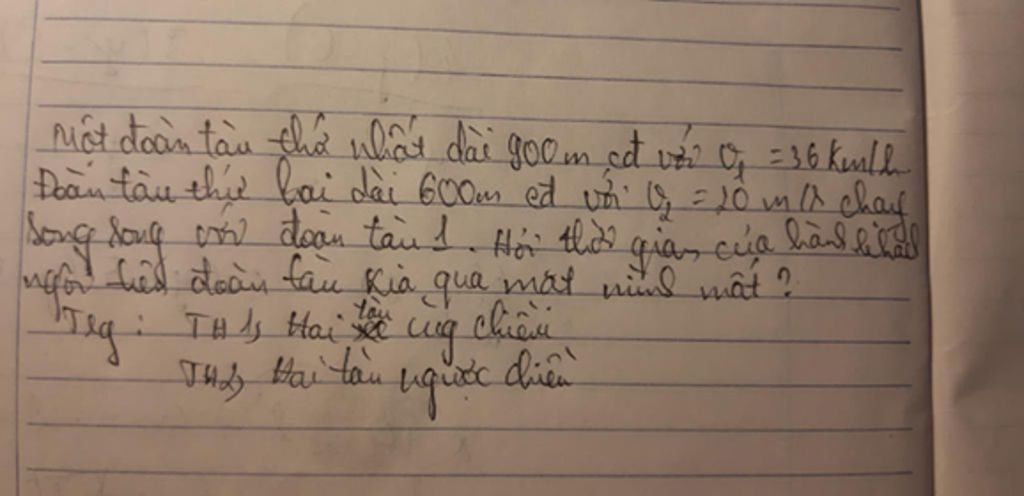 Một đoàn tàu thứ nhất dài 900m cđ với v₁ = 36 km/h.
Đoàn tàu thứ hai dài 600m cđ với v₂ = 20 m/s chạy
song song với đoàn tàu 1. Hỏi thời gian của hành khách
ngồi trên đoàn tàu kia qua mặt mình mất?
Trg: TH1, Hai tàu cùng chiều
TH2, Hai tàu ngược chiều